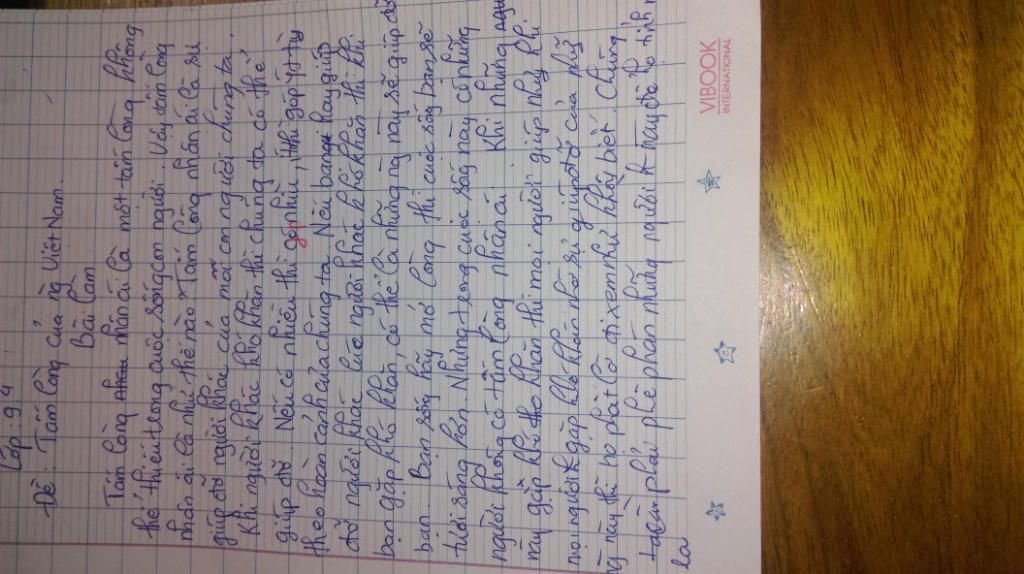 Lớp: 9⁴
Đề: Tấm lòng của ng Việt Nam.
Bài làm.
Tấm lòng nhân ái là một tấm lòng không
thể thiếu trong cuộc sống con người. Vậy tấm lòng
nhân ái là như thế nào. Tấm lòng nhân ái là sự
giúp đỡ người khác của mỗi con người chúng ta.
Khi người khác khó khăn thì chúng ta có thể
giúp đỡ. Nếu có nhiều thì góp nhiều, ít thì góp ít tùy
theo hoàn cảnh của chúng ta. Nếu bạn hay giúp
đỡ người khác lúc người khác khó khăn thì khi
bạn gặp khó khăn, có thể là những ng này sẽ giúp đỡ
bạn. Bạn sống hãy mở lòng thì cuộc sống bạn sẽ
tươi sáng hơn. Nhưng trong cuộc sống này có những
người không có tấm lòng nhân ái. Khi những người
này gặp khó khăn thì mọi người giúp nhưng khi
mọi người gặp khó khăn nhờ sự giúp đỡ của những
ng này thì họ phớt lờ đi xem như không biết. Chúng
ta cần phải phê phán những người k thay đổi
là
VIBOOK
INTERNATIONAL